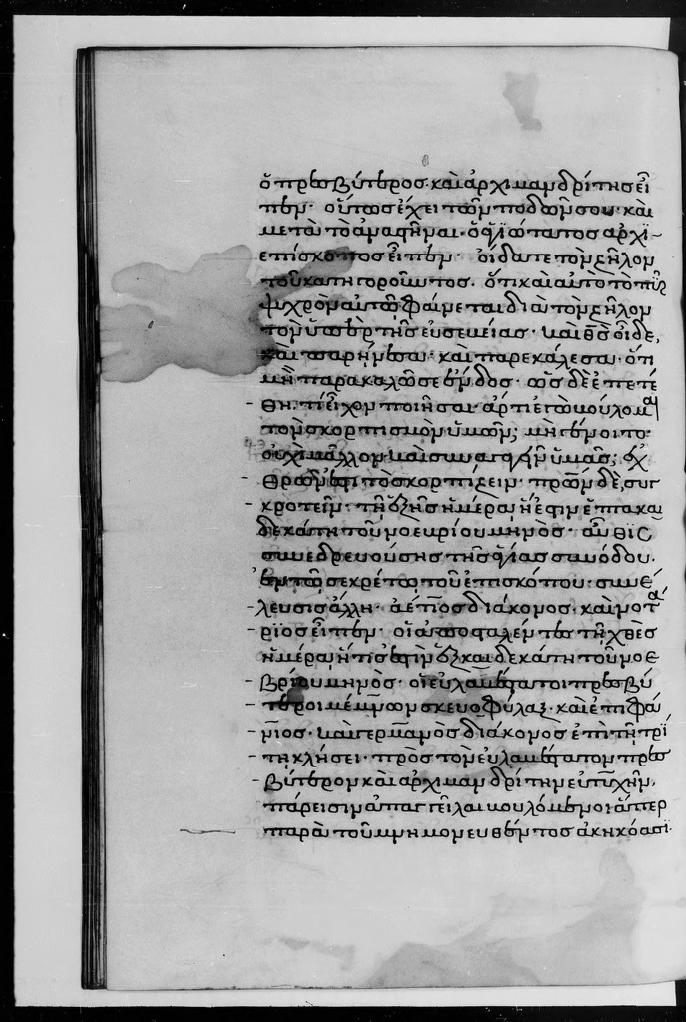 ὁ πρεσβύτερος καὶ ἀρχιμανδρίτης εἶ
πεν· οὕτως ἔχει τῶν ποδῶν σου· καὶ
μετὰ τὸ ἀναγῆναι· ὁ ἁγιώτατος ἀρχι
επίσκοπος εἶπεν· οἴδατε τὸν ζῆλον
τοῦ κατηγοροῦντος· ὅτι καὶ αὐτὸ τὸ πῦρ
ψυχρὸν αὐτῶ φαίνεται διὰ τὸν ζῆλον
τὸν ὑπὲρ τῆς εὐσεβείας· καὶ θς οἶδε,
καὶ παρήνεσα· καὶ παρεκάλεσα· ὅτι
μὴ παρακαλῶ σε ἔνδος· ὡς δὲ ἐπετέ
θη· τί εἶχον ποιῆσαι· ἄρτι ἐγὼ βούλομαι
τὸν σκορπισμὸν ὑμῶν; μὴ γένοιτο·
οὐχὶ μᾶλλον καὶ συναγαγεῖν ὑμᾶς; ἐχ
θρῶν ἐστι τὸ σκορπίζειν· πρῶν δὲ, συγ
κροτεῖν· τῇ ἑξῆς ἡμέρα, ἥ ἐστιν ἑπτακαι
δεκάτη τοῦ νοεβρίου μηνὸς· αὖθις
συνεδρευούσης τῆς ἁγίας συνόδου.
ἐν τῶ σεκρέτω τοῦ ἐπισκόπου· συνέ
λευσις ἄλλη· ἀέτιος διάκονος καὶ νοτά
ριος εἶπεν· οἱ ἀποσταλέντες τῇ χθὲς
ἡμέρα ἥτις ἐστὶν ἑξκαιδεκάτη τοῦ νοε
βρίου μηνὸς· οἱ εὐλαβέστατοι πρεσβύ
τεροι μέμνων σκευοφύλαξ· καὶ ἐπιφά
νιος· καὶ γερμανὸς διάκονος ἐπὶ τῇ τρί
τη κλήσει· πρὸς τὸν εὐλαβέστατον πρεσ
βύτερον καὶ ἀρχιμανδρίτην εὐτυχῆν,
πάρεισιν ἀπαγγεῖλαι βουλόμενοι ἅπερ
παρὰ τοῦ μνημονευθέντος ἀκηκόασι·